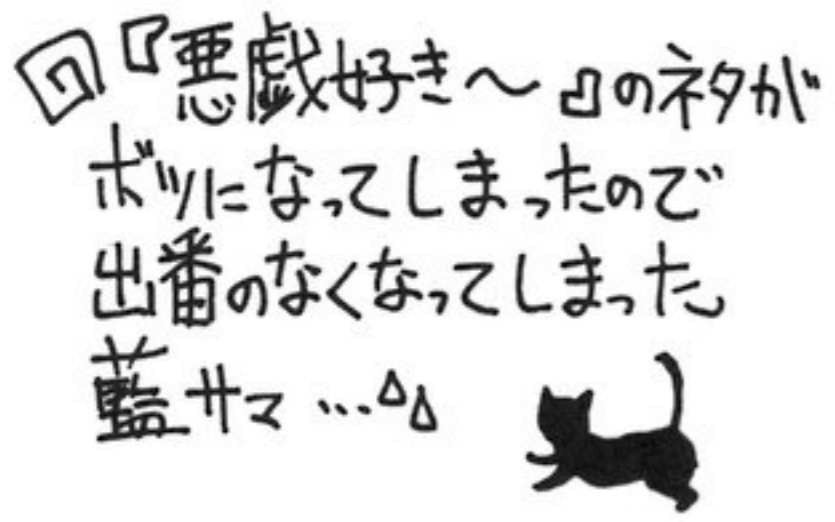 『悪戯好き〜』のネタが
ボツになってしまったので
出番のなくなってしまった
藍サマ…